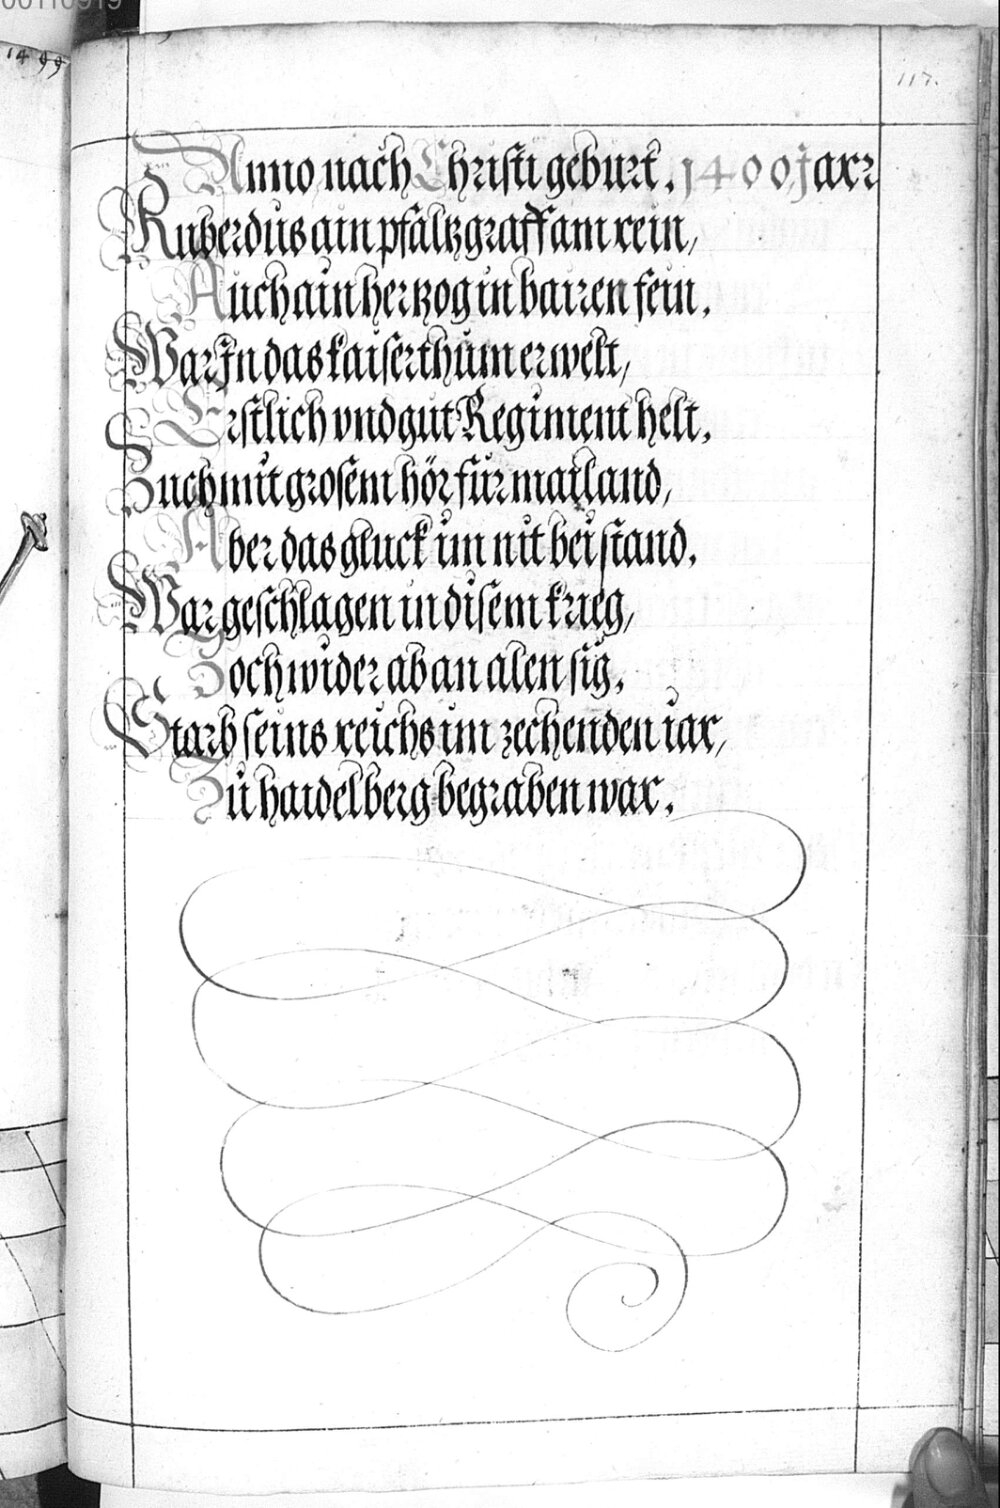 00110919
1499
117.
Anno nach Christi geburt. 1400 Jarr
Ruberdus ain pfaltzgraff am rein,
Auch ain hertzog in bairen fein.
War Jn das kaiserthum erwelt,
Erstlich vnd gut Regiment helt.
Zuch mit grosem hör für mailand,
Aber das gluck im nit bei stand.
War geschlagen in disem krieg,
Zoch wider ab an alen sig.
Starb seins reichs im zechenden iar,
Zu haidelberg begraben war.